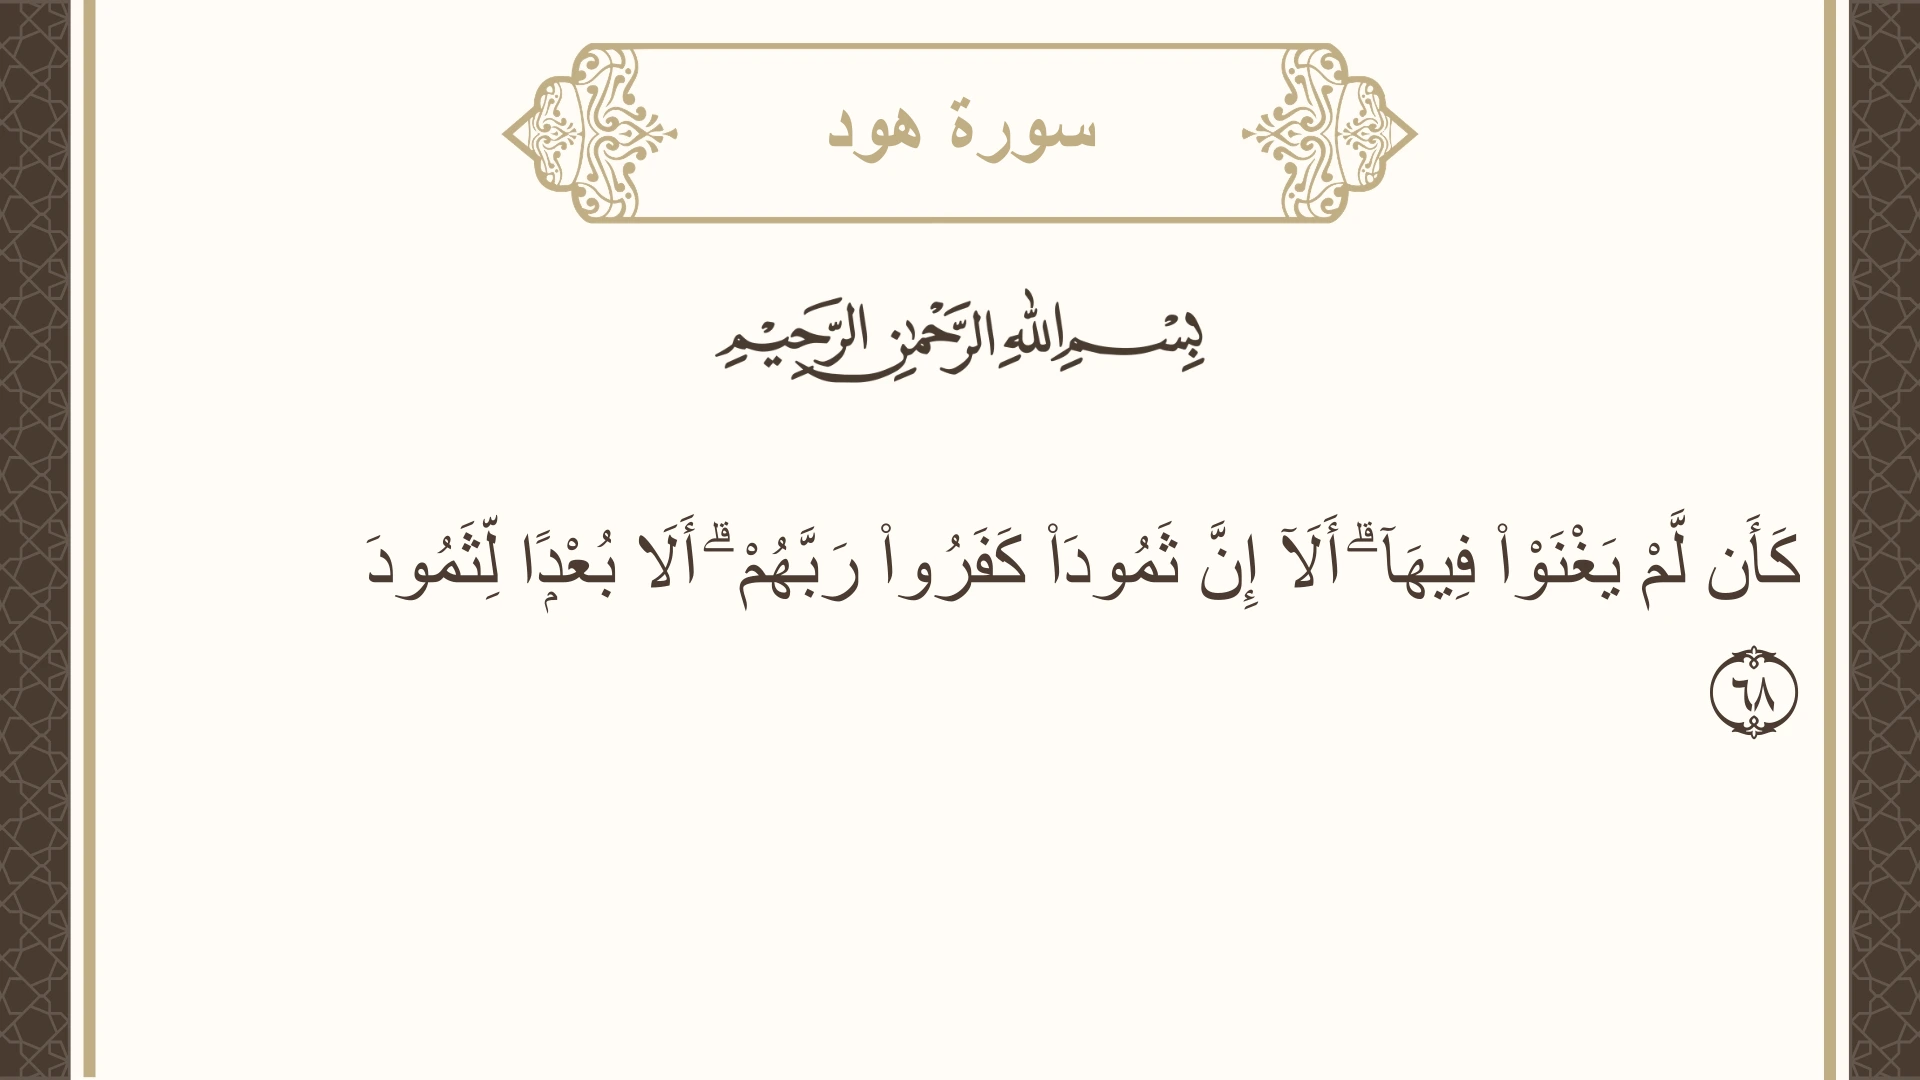 سورة هود
بِسْمِ اللهِ الرَّحْمٰنِ الرَّحِيْمِ
كَأَن لَّمْ يَغْنَوْا۟ فِيهَآ ۗ أَلَآ إِنَّ ثَمُودَا۟ كَفَرُوا۟ رَبَّهُمْ ۗ أَلَا بُعْدًۭا لِّثَمُودَ
٦٨